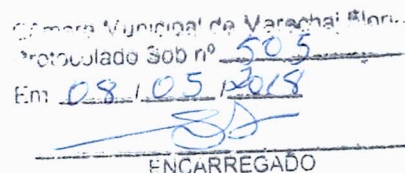 Câmara Municipal de Marechal Flori..
Protocolado Sob nº 505
Em 08 / 05 / 2018
ENCARREGADO